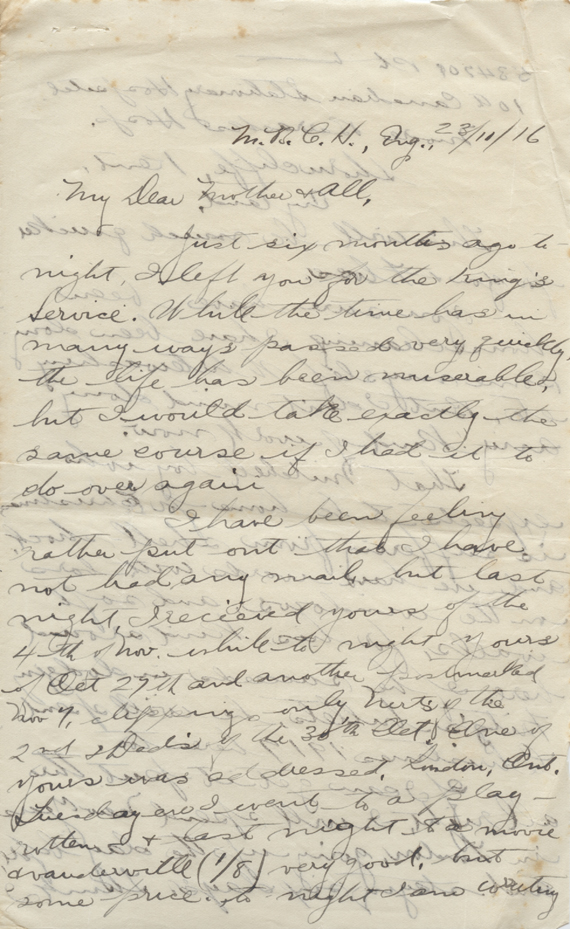 M.B.C.H., Eng., 23/11/16
My Dear Mother & All,
Just six months ago to-
night, I left you for the King's
service. While the time has in
many ways passed very quickly,
the life has been miserable,
but I would take exactly the
same course if I had it to
do over again
I have been feeling
rather put out that I have
not had any mail but last
night, I received yours of the
4th of Nov. while to night yours
of Oct 29th and another postmarked
Nov 7, clippings only Nert's of the
2nd & Dad's of the 30th Oct. One of
yours was addressed, London, Ont.
Tuesday eve I went to a play-
rotten & last night to a movie
& vanderville (1/8) very good, but
some price. to night I am writing